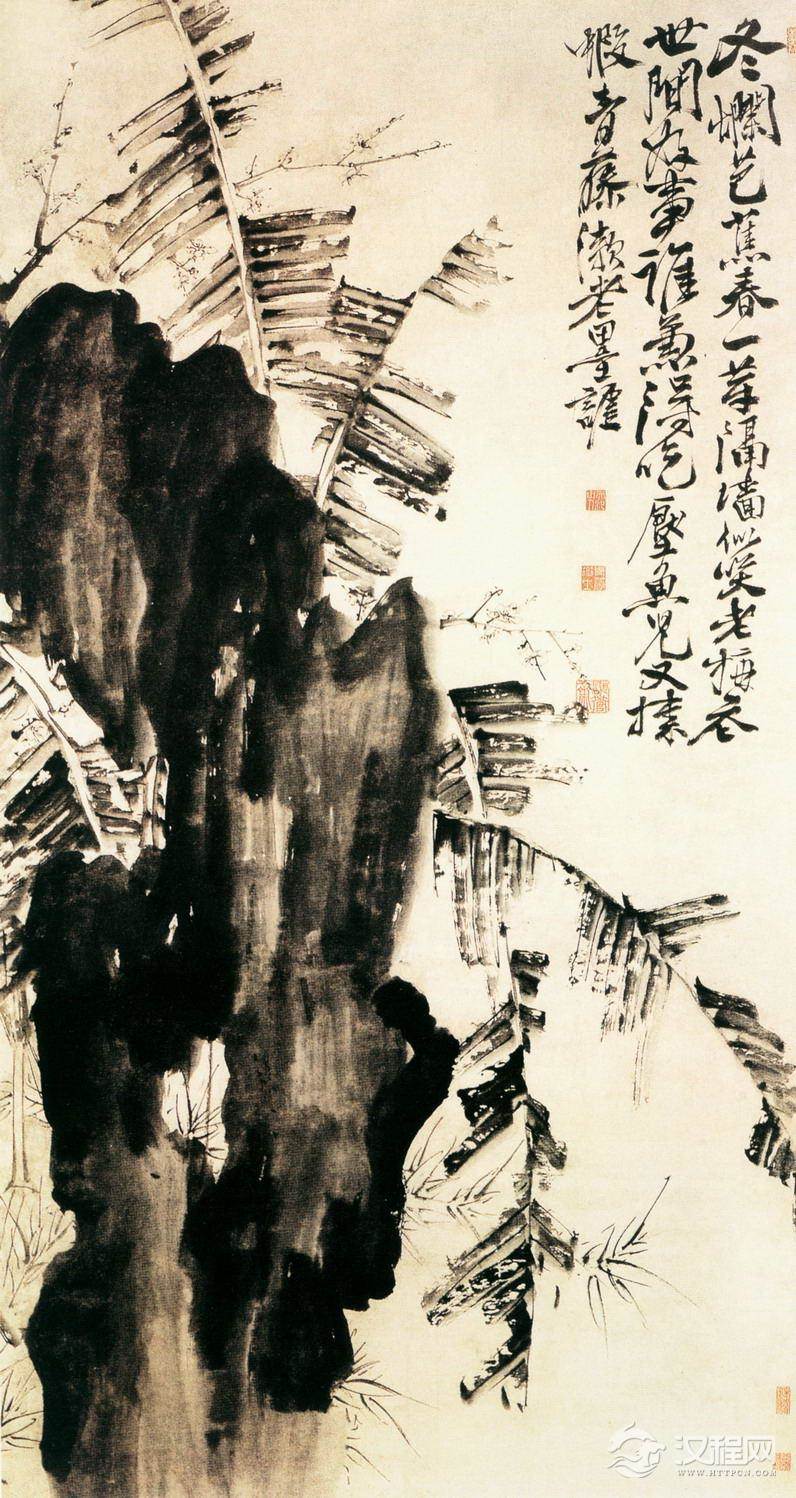 冬爛芭蕉春一芽隔墻似笑老梅花
世間好事誰兼得吃厭魚兒又揀
蝦青藤漱老墨謔
汉程网
WWW.HTTPCN.COM